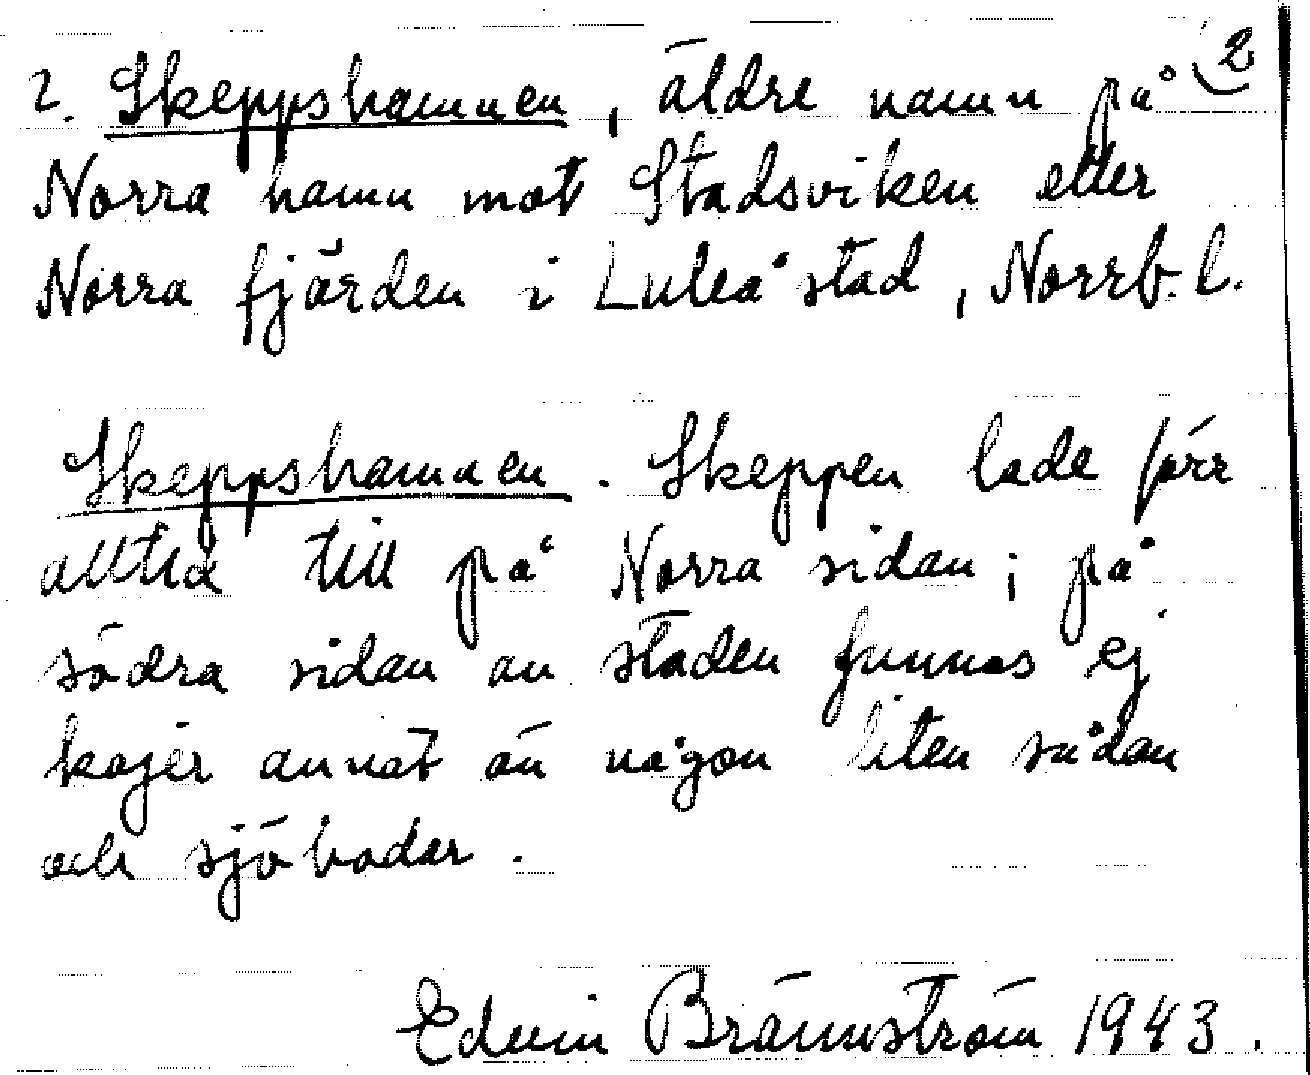 2. Skeppshamnen, äldre namn på 2
Norra hamn mot Stadsviken eller
Norra fjärden i Luleå stad, Norrb. l.
Skeppshamnen. Skeppen lade förr
alltid till på Norra sidan; på
södra sidan av staden funnos ej
kajer annat än någon liten sådan
och sjöbodar.
Edvin Brännström 1943.